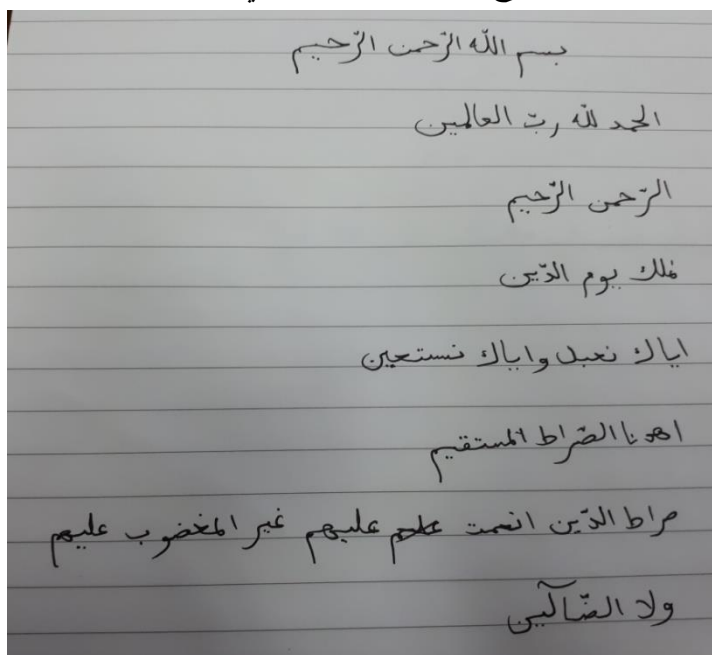 بسم الله الرّحمن الرّحيم
الحمد لله ربّ العالمين
الرّحمن الرّحيم
ملك يوم الدّين
اياك نعبد واياك نستعين
اهدنا الصّراط المستقيم
صراط الذّين انعمت عليهم غير المغضوب عليهم
ولا الضّآلّين